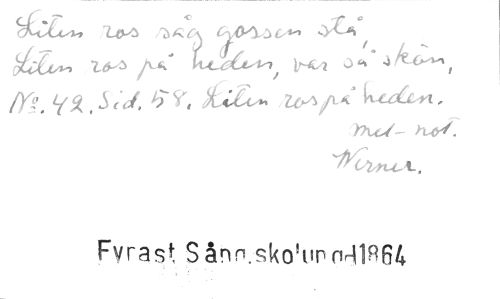 Liten ros såg gossen stå,
Liten ros på heden, var så skön,
No. 42. Sid. 58. Liten ros på heden.
mel-not.
Werner.
Fyrast Sång.skolungd 1864